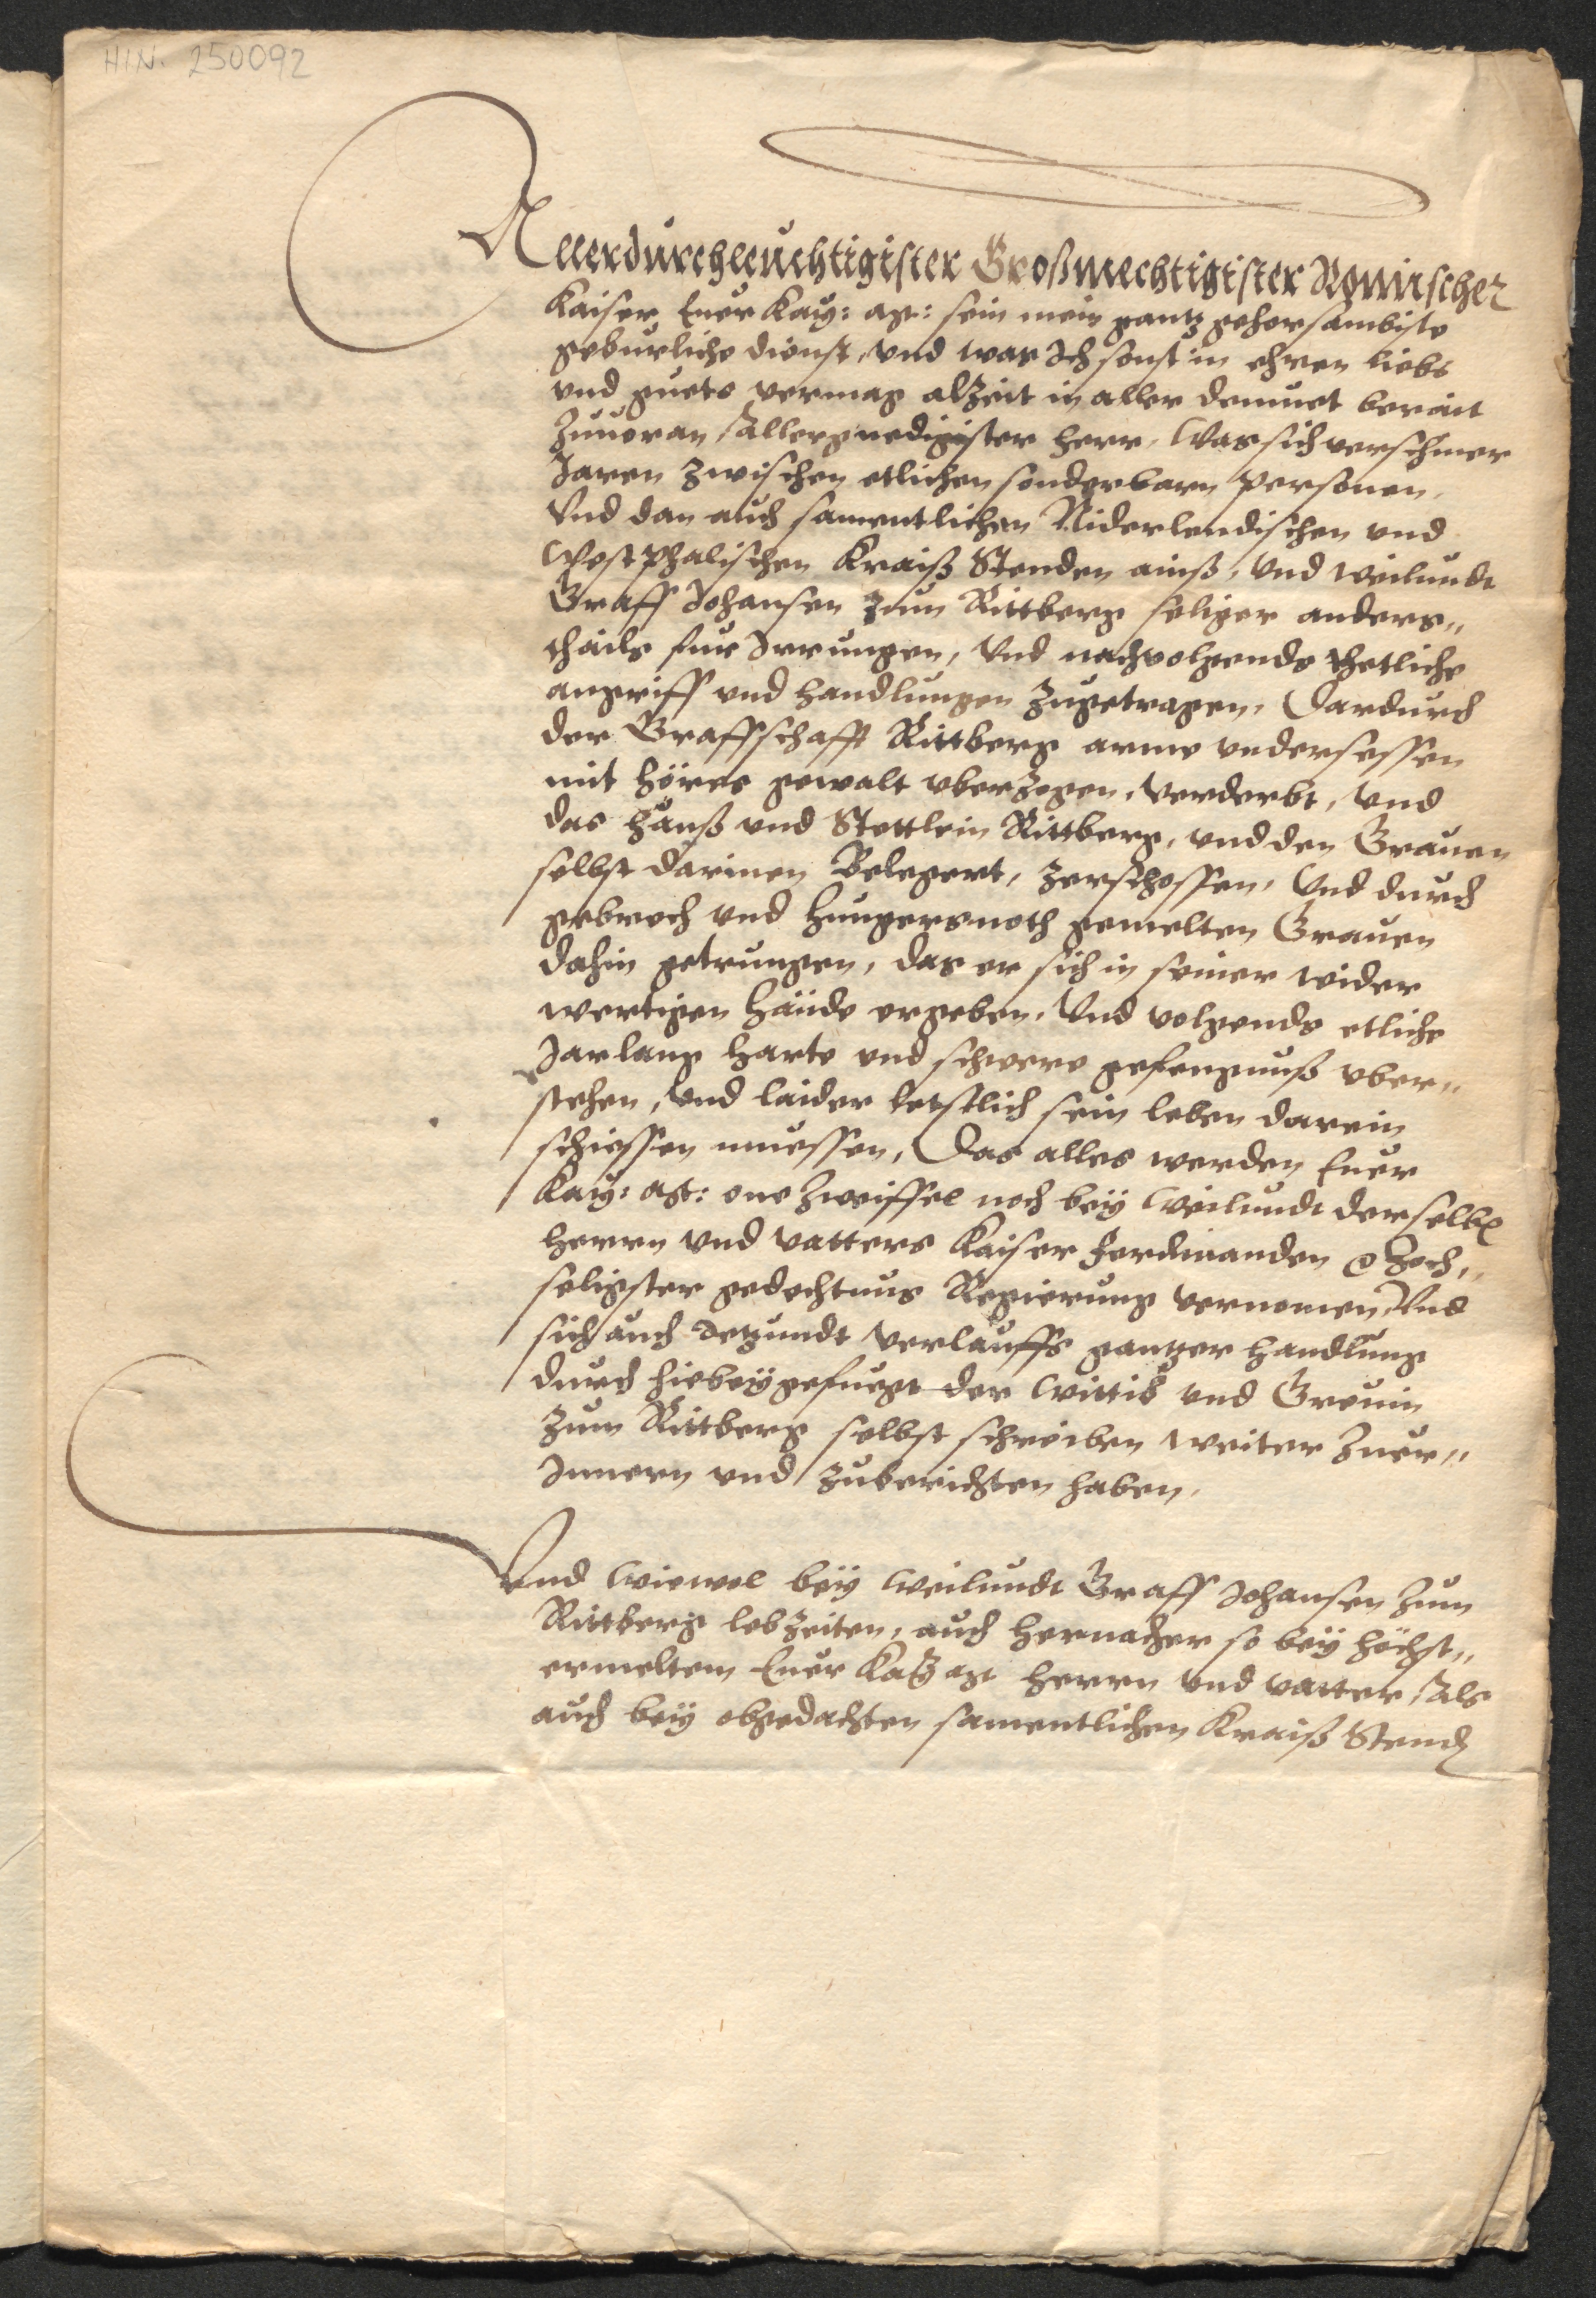 HIN. 250092
Allerdurchleuchtigister Großmechtigister Romischer
Kaiser Euer Kay: Mt: sein mein gantz gehorsambiste
geburliche dienst, und was Ich sonst in ehren liebs
und guets vermag alzeit in aller demuet berait
Zuuoran Allergnedigister herr, Was sich verschiner
Jaren zwischen etlichen sonderbarn personen,
Und dan auch samentlichen Niderlendischen und
Westphalischen Kraiß Stenden ainß, Und weilundt
Graff Johansen zum Rittberg seliger anders„
thails fur Irrungen, Und nachvolgends thetliche
angriff und handlungen zugetragen, Dardurch
der Graffschafft Rittberg arme undersessen
mit höres gewalt uberzogen, verderbt, Und
das hauß und Stettlein Rittberg, und den Grauen
selbst darinen Belegert, zerschossen, Und durch
gebroch und hungersnoth gemelten Grauen
dahin getrungen, das er sich in seiner wider
wertigen hände ergeben, Und volgends etliche
Jar lang harte und schwere gefengnuß uber„
stehen, Und laider letstlich sein leben darein
schiessen muessen, Das alles werden Euer
Kay: Mt: one Zweiffel noch bey Weilundt derselben
herrn und vatters Kaiser Ferdinanden hoch„
seligster gedechtnus Regierung vernomen, Und
sich auch Jetzundt verlauffs gantzer handlung
durch hiebey gefuegt der Wittib und Greuin
zum Rittberg selbst schreiben weiter Zuer„
Innern und zuberichten haben.
Und Wiewol bey Weilundt Graff Johansen zum
Rittberg lebzeiten, auch hernacher so bey höchst„
ermeltem Euer Kay Mt herrn und vatter, Als
auch bey obgedachten samentlichen Kraiß Stenden